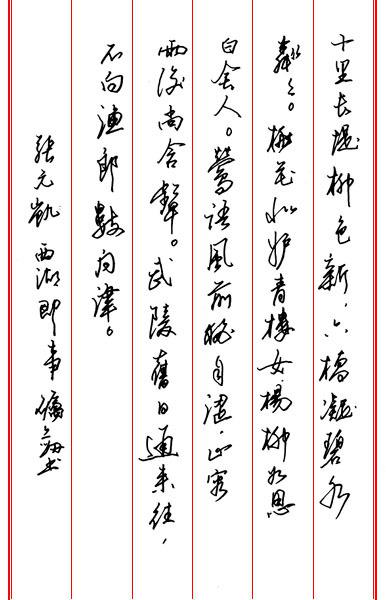 十里长堤柳色新，六桥凝碧水
粼々。梅花似妒青楼女，杨柳如思
白舍人。莺语风前犹自涩，山容
雨后尚含颦。武陵旧日通来往，
不向渔郎数问津。
张元凯 西湖即事